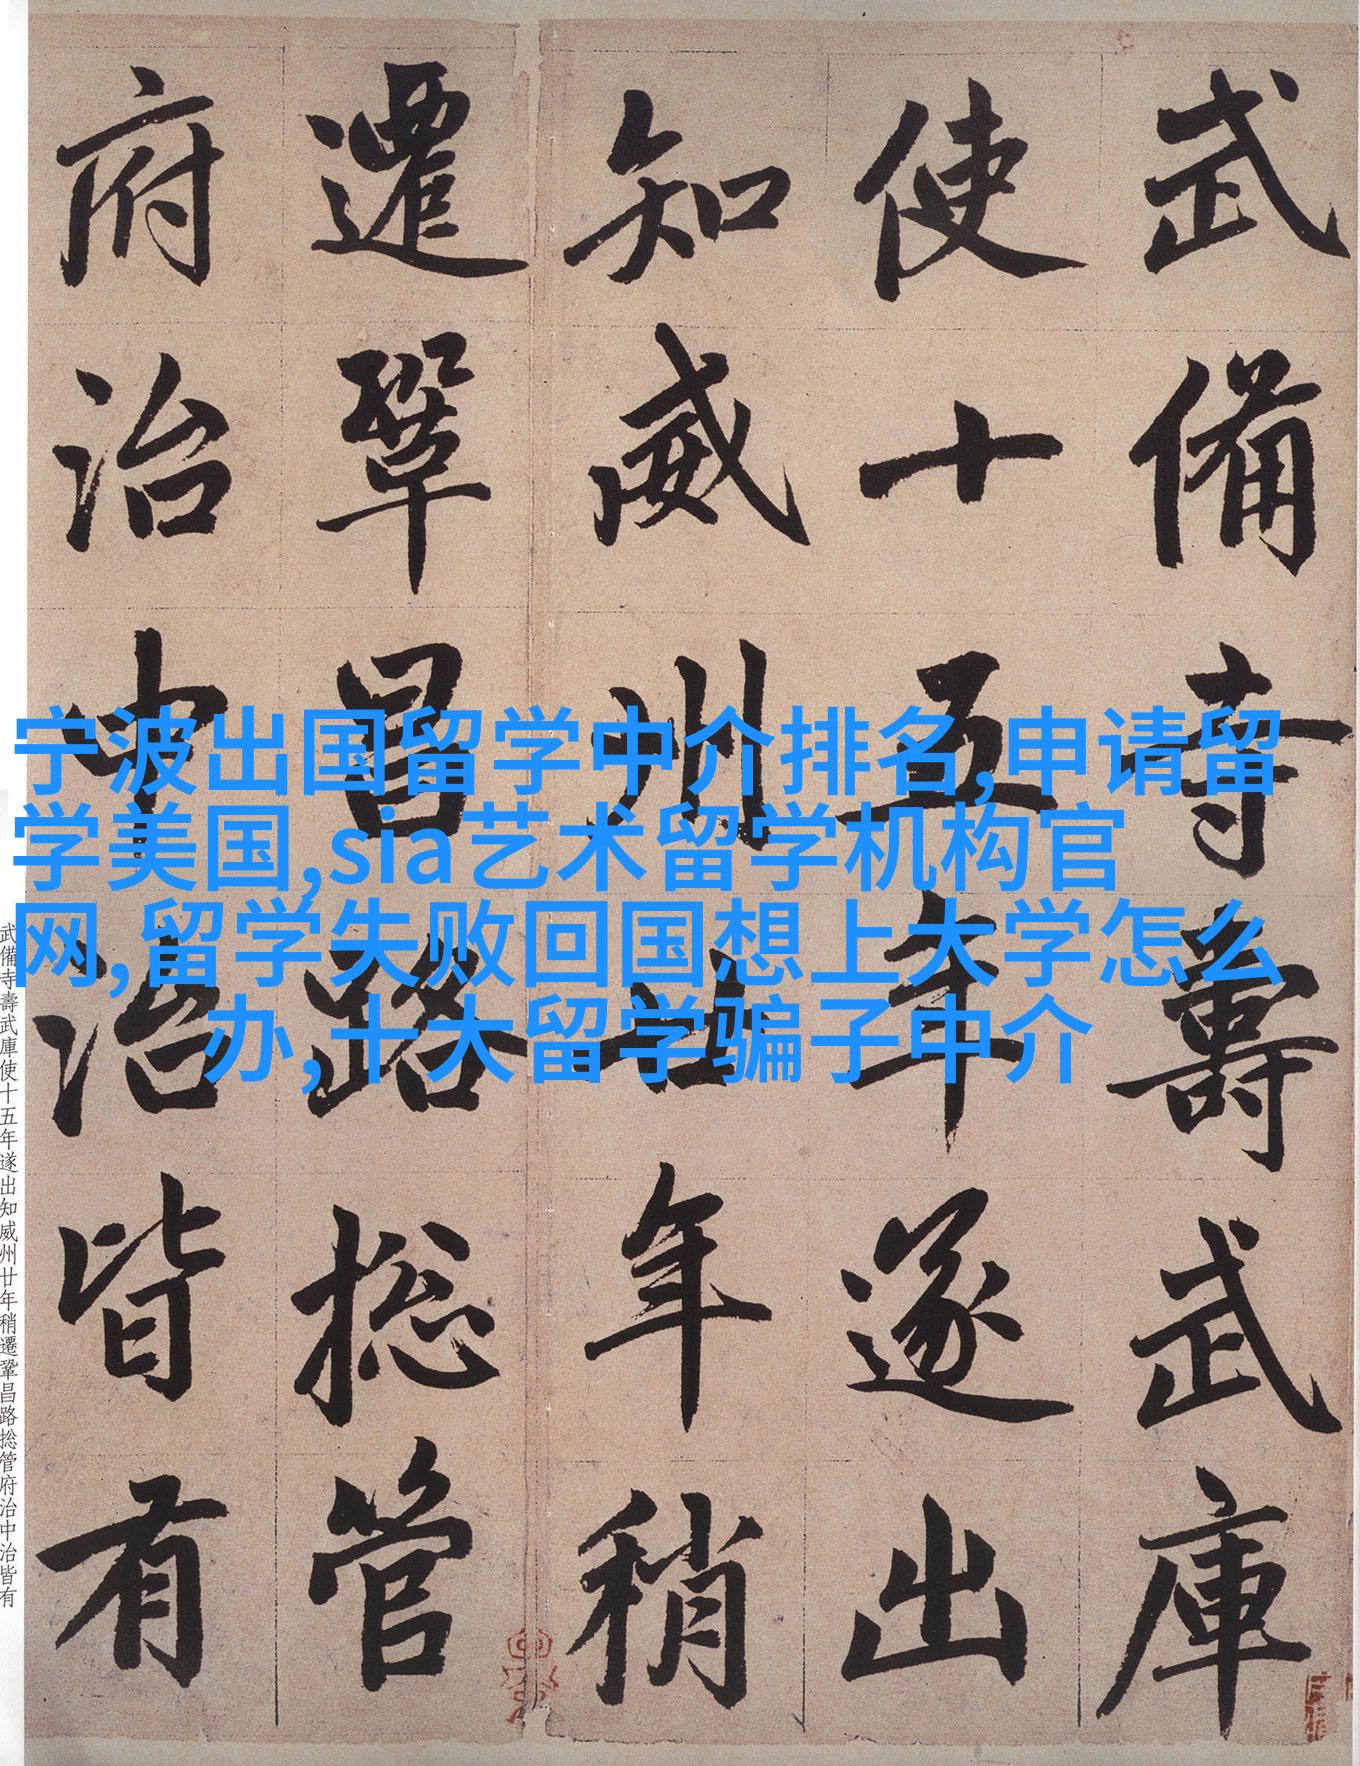 武備寺壽武庫
使十五年遂出
知威州廿年稍
遷鞏昌路捴管
府治中治皆有
宁波出国留学中介排名,申请留
学美国,sia艺术留学机构官
网,留学失败回国想上大学怎么
办,十大留学骗子中介
武備寺壽武庫使十五年遂出知威州廿年稍遷鞏昌路捴管府治中治皆有